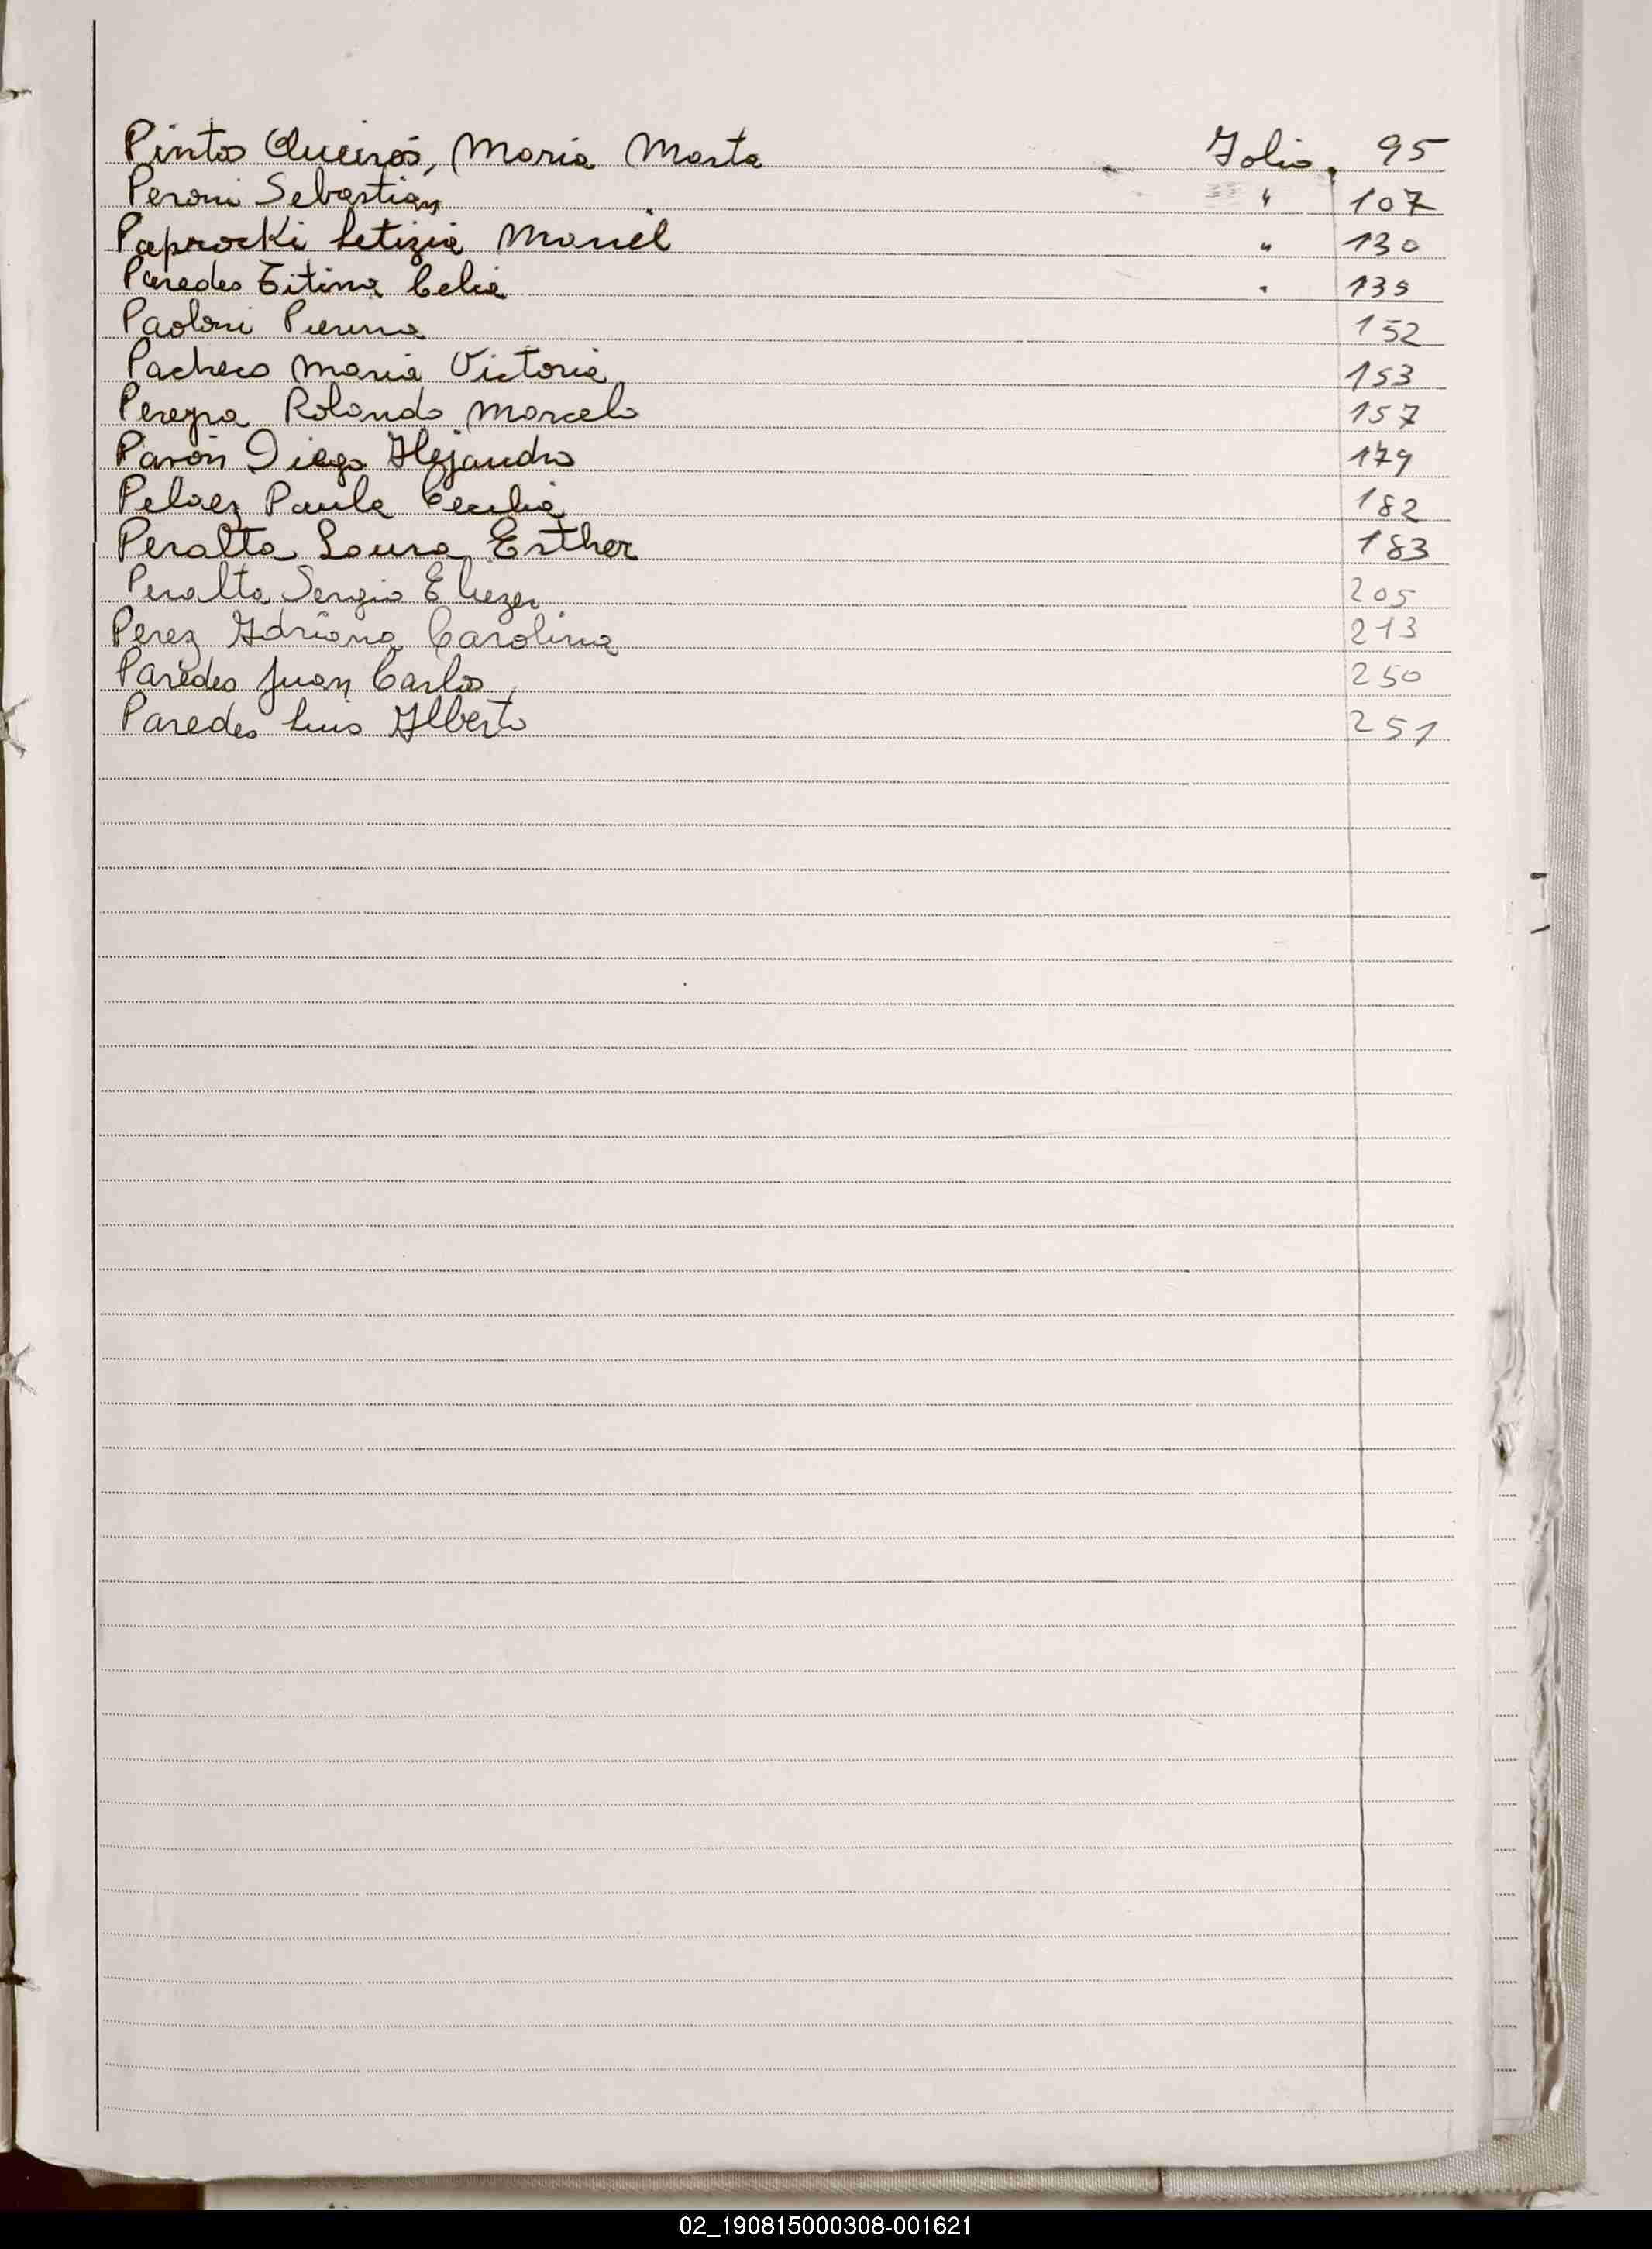 Pintos Queirós, Maria Marta Folio. 95
Peroni Sebastian " 107
Paprocki Letizia Mariél " 130
Paredes Titina Celia " 139
Paoloni Pierina 152
Pacheco Maria Victoria 153
Pereyra Rolando Marcelo 157
Pavón Diego Alejandro 179
Pelaez Paula Cecilia 182
Peralta Laura Esther 183
Peralta Sergio Eliezer 205
Perez Adriana Carolina 213
Paredes Juan Carlos 250
Paredes Luis Alberto 251
02_190815000308-001621